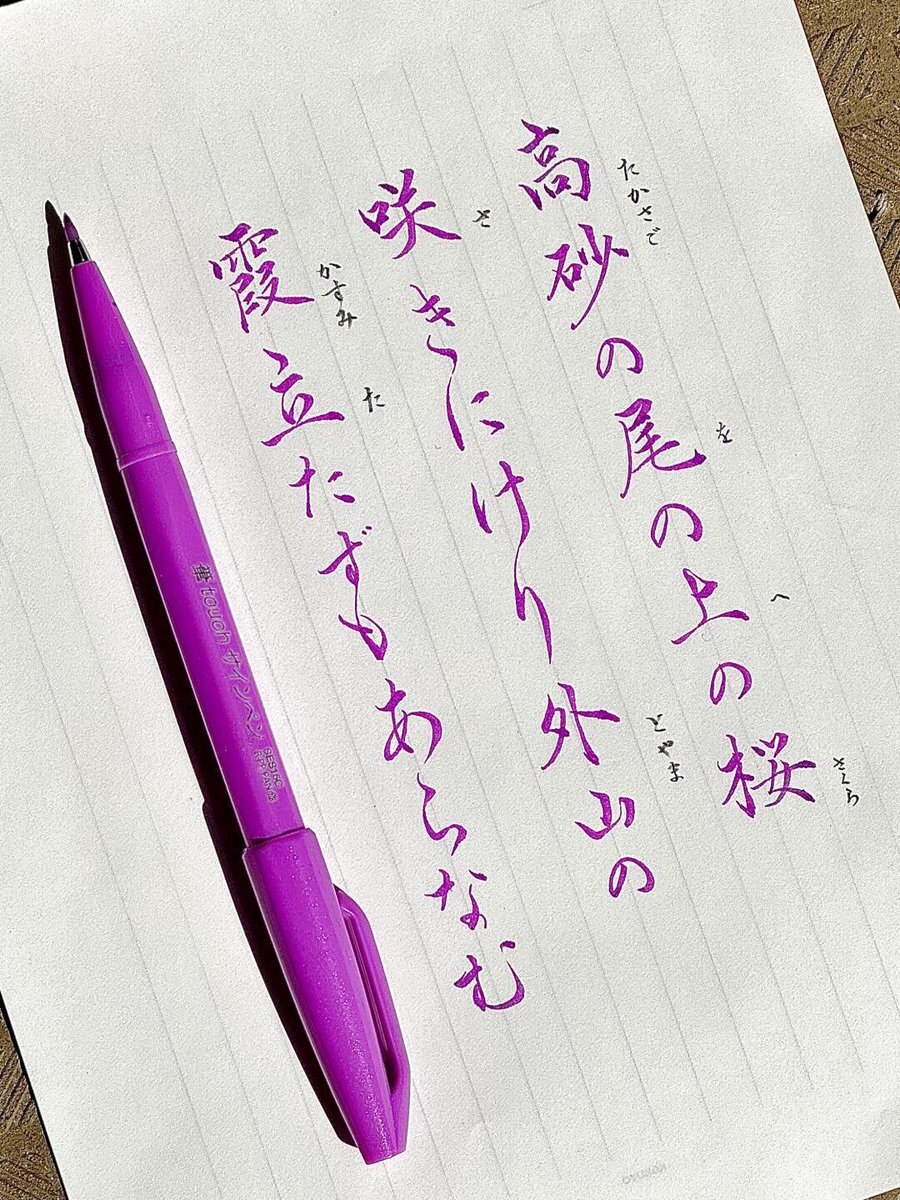 高砂の尾の上の桜
たかさで
を
へ
さくら
咲きにけり外山の
さ
とやま
霞立たずもあらなむ
かすみ
た
筆touch サインペン
SES15C